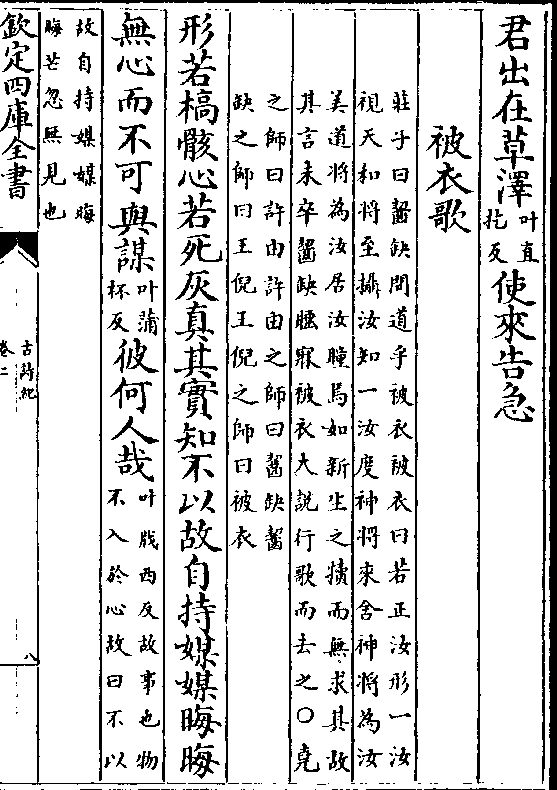 君出在草澤叶直扢反使來告急
被衣歌
莊子曰齧缺問道乎被衣被衣曰若正汝形一汝
視天和將至攝汝知一汝度神將來舍神將為汝
美道將為汝居汝瞳焉如新生之犢而無求其故
其言未卒齧缺睡寐被衣大說行歌而去之○堯
之師曰許由許由之師曰齧缺齧
缺之師曰王倪王倪之師曰被衣
形若槁骸心若死灰真其實知不以故自持媒媒晦晦
無心而不可與謀叶蒲杯反彼何人哉叶戕西反故事也物不入於心故曰不以
故自持媒媒晦
晦芒忽無見也
欽定四庫全書
古詩紀
卷二
八